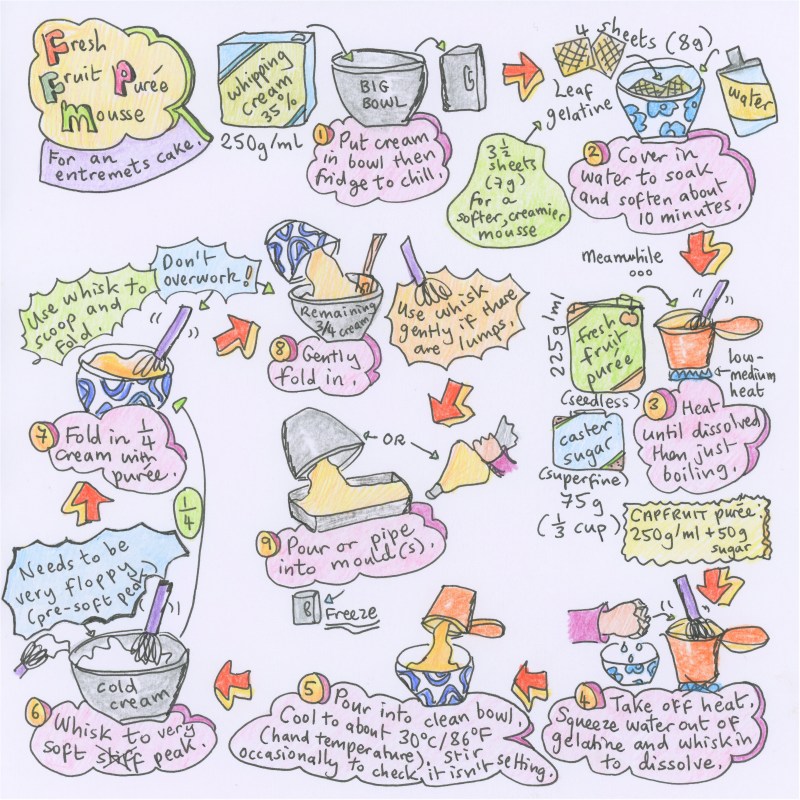 Fresh
Fruit Purée
Mousse
For an
entremets cake.
whipping
cream
35%
250g/ml
BIG
BOWL
1 Put cream
in bowl then
fridge to chill.
4 sheets (8g)
Leaf
gelatine
water
3 1/2
sheets
(7g)
for a
softer, creamier
mousse
2 Cover in
water to soak
and soften about
10 minutes.
Meanwhile
...
225g/ml
fresh
fruit
purée
(seedless)
caster
sugar
(superfine)
75g
(1/3 cup)
low-
medium
heat
3 Heat
until dissolved
than just
boiling.
CAPFRUIT purée:
250g/ml + 50g
sugar
4 Take off heat.
Squeeze water out of
gelatine and whisk in
to dissolve.
5 Pour into clean bowl.
Cool to about 30°C/86°F
(hand temperature). Stir
occasionally to check it isn't setting.
Needs to be
very floppy
(pre-soft peak)
cold
cream
6 Whisk to very
soft stiff peak.
1/4
Use whisk to
scoop and
fold.
Don't
overwork!
7 Fold in 1/4
cream with
purée
Remaining
3/4 cream
8 Gently
fold in.
Use whisk
gently if there
are lumps.
OR
9 Pour or pipe
into mould(s).
Freeze